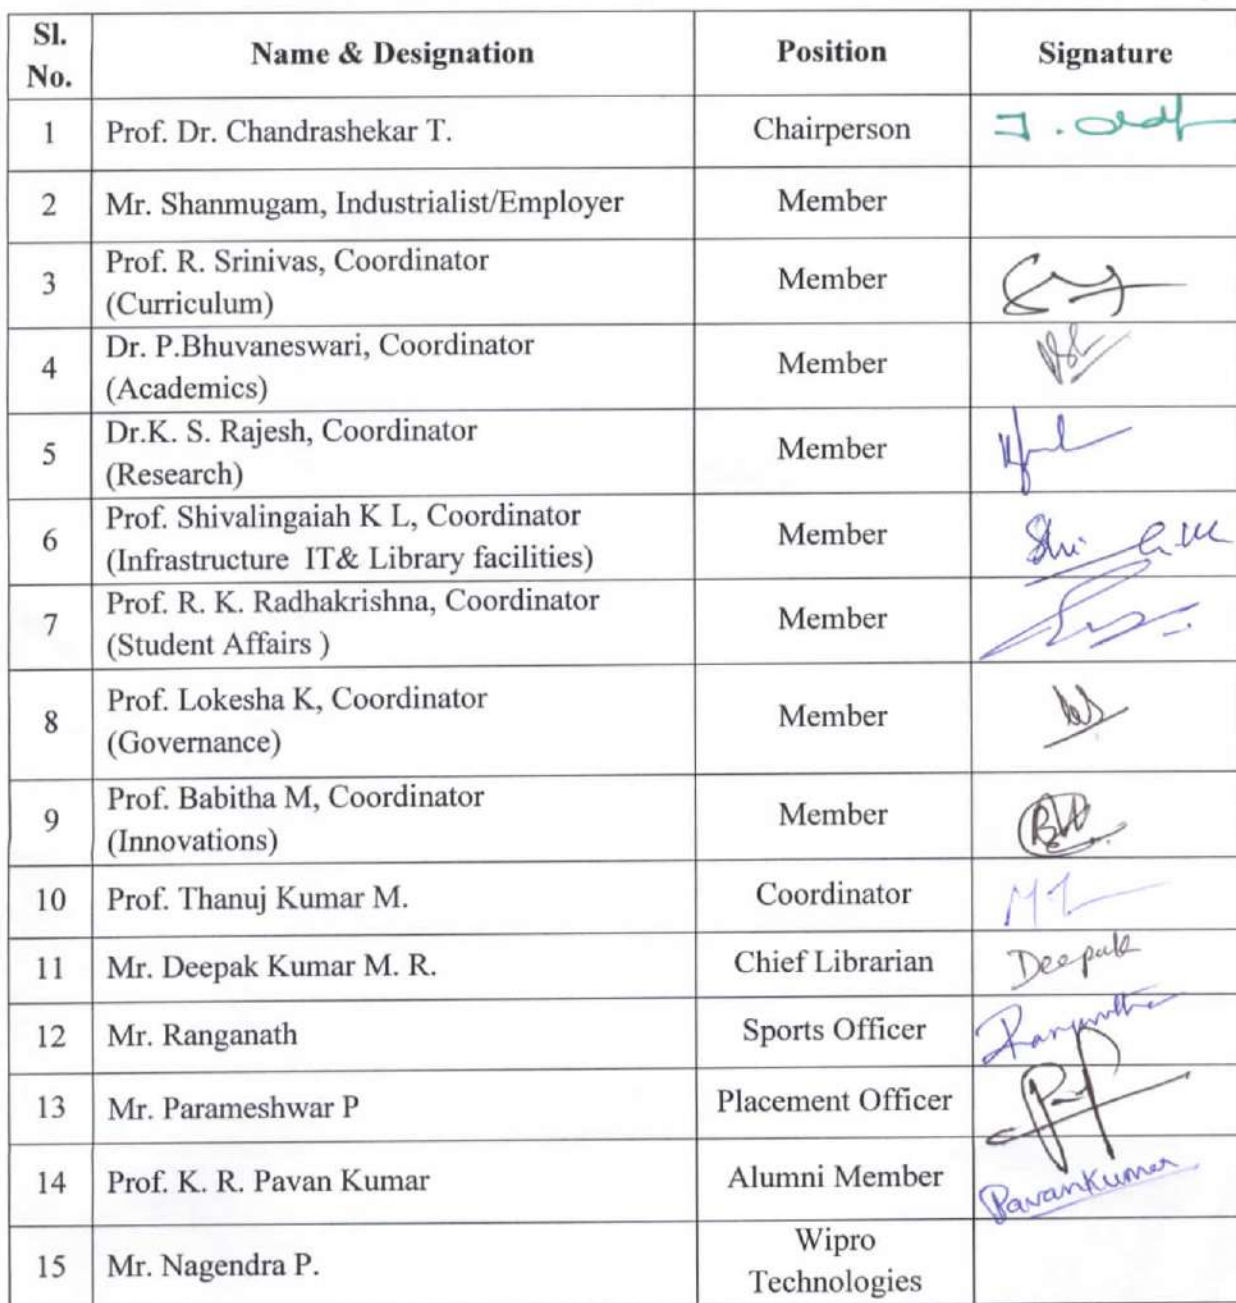 Sl. No. Name & Designation Position Signature
1 Prof. Dr. Chandrashekar T. Chairperson
2 Mr. Shanmugam, Industrialist/Employer Member
3 Prof. R. Srinivas, Coordinator
(Curriculum) Member
4 Dr. P.Bhuvaneswari, Coordinator
(Academics) Member
5 Dr.K. S. Rajesh, Coordinator
(Research) Member
6 Prof. Shivalingaiah K L, Coordinator
(Infrastructure IT& Library facilities) Member
7 Prof. R. K. Radhakrishna, Coordinator
(Student Affairs ) Member
8 Prof. Lokesha K, Coordinator
(Governance) Member
9 Prof. Babitha M, Coordinator
(Innovations) Member
10 Prof. Thanuj Kumar M. Coordinator
11 Mr. Deepak Kumar M. R. Chief Librarian Deepak
12 Mr. Ranganath Sports Officer
13 Mr. Parameshwar P Placement Officer
14 Prof. K. R. Pavan Kumar Alumni Member PavanKumar
15 Mr. Nagendra P. Wipro
Technologies